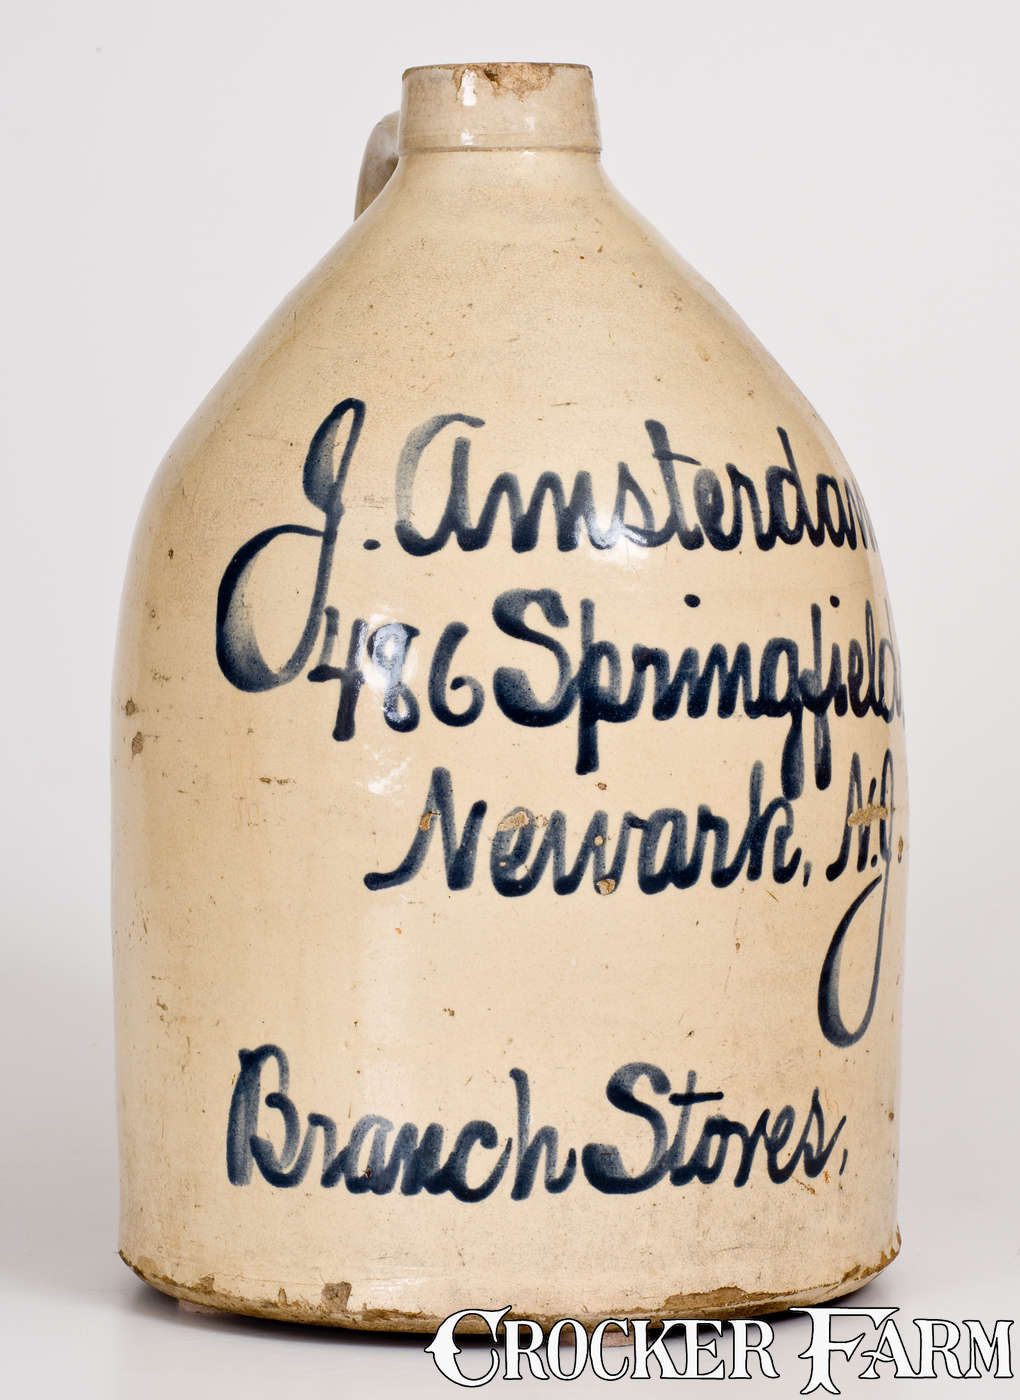 J. Amsterdam
486 Springfield
Newark, N.J.
Branch Stores,
CROCKER FARM